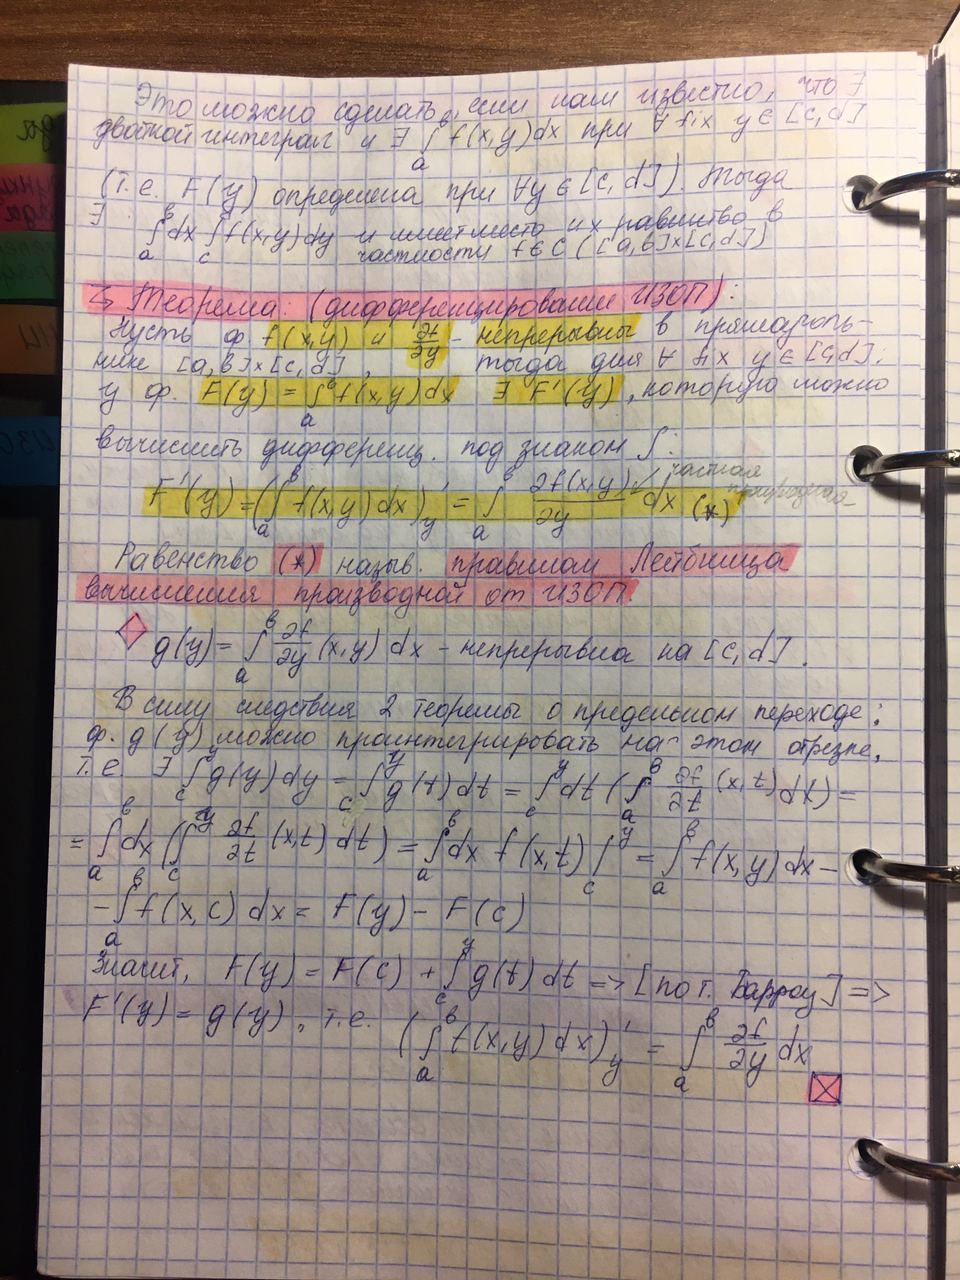 Это можно сделать, если нам известно, что ∃
двойной интеграл и ∃ ∫ₐᵇ f(x,y)dx при ∀ fix y ∈ [c,d]
(т.е. F(y) определена при ∀y ∈ [c,d]). Тогда
∃ ∫ₐᵇ dx ∫ f(x,y)dy и имеет место их равенство в
частности f ∈ C ([a,b]×[c,d])
Теорема: (дифференцирование ИЗОП):
Пусть ф. f(x,y) и ∂f/∂y - непрерывны в прямоуголь-
нике [a,b]×[c,d], тогда для ∀ fix y ∈ [c,d]:
у ф. F(y) = ∫ₐᵇ f(x,y)dx ∃ F'(y), которую можно
вычислить дифференц. под знаком ∫:
частная
производная
F'(y) = (∫ₐᵇ f(x,y)dx)'_y = ∫ₐᵇ ∂f(x,y)/∂y dx (*)
Равенство (*) назыв. правилом Лейбница
вычисления производной от ИЗОП.
g(y) = ∫ₐᵇ ∂f/∂y (x,y) dx - непрерывна на [c,d].
В силу следствия 2 теоремы о предельном переходе:
ф. g(y) можно проинтегрировать на этом отрезке,
т.е ∃ ∫_c^y g(y)dy = ∫_c^y g(t)dt = ∫_c^y dt (∫ₐᵇ ∂f/∂t (x,t)dx) =
= ∫ₐᵇ dx (∫_c^y ∂f/∂t (x,t) dt) = ∫ₐᵇ dx f(x,t) |_c^y = ∫ₐᵇ f(x,y)dx -
- ∫ₐᵇ f(x,c) dx = F(y) - F(c)
Значит, F(y) = F(c) + ∫_c^y g(t)dt => [по т. Барроу] =>
F'(y) = g(y), т.е. (∫ₐᵇ f(x,y)dx)'_y = ∫ₐᵇ ∂f/∂y dx